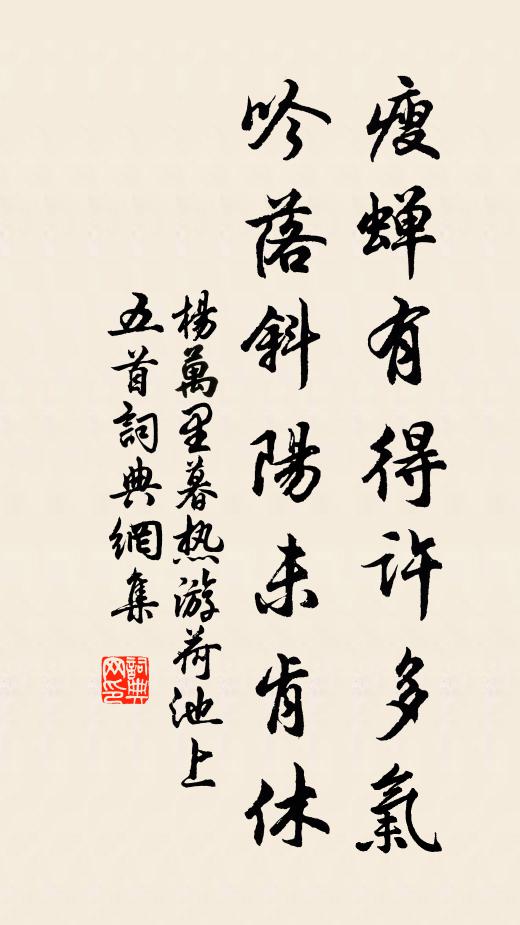 瘦蟬有得許多氣
吟落斜陽未肯休
楊萬里暮热游荷池上
五首詞典網集
詞典
网印